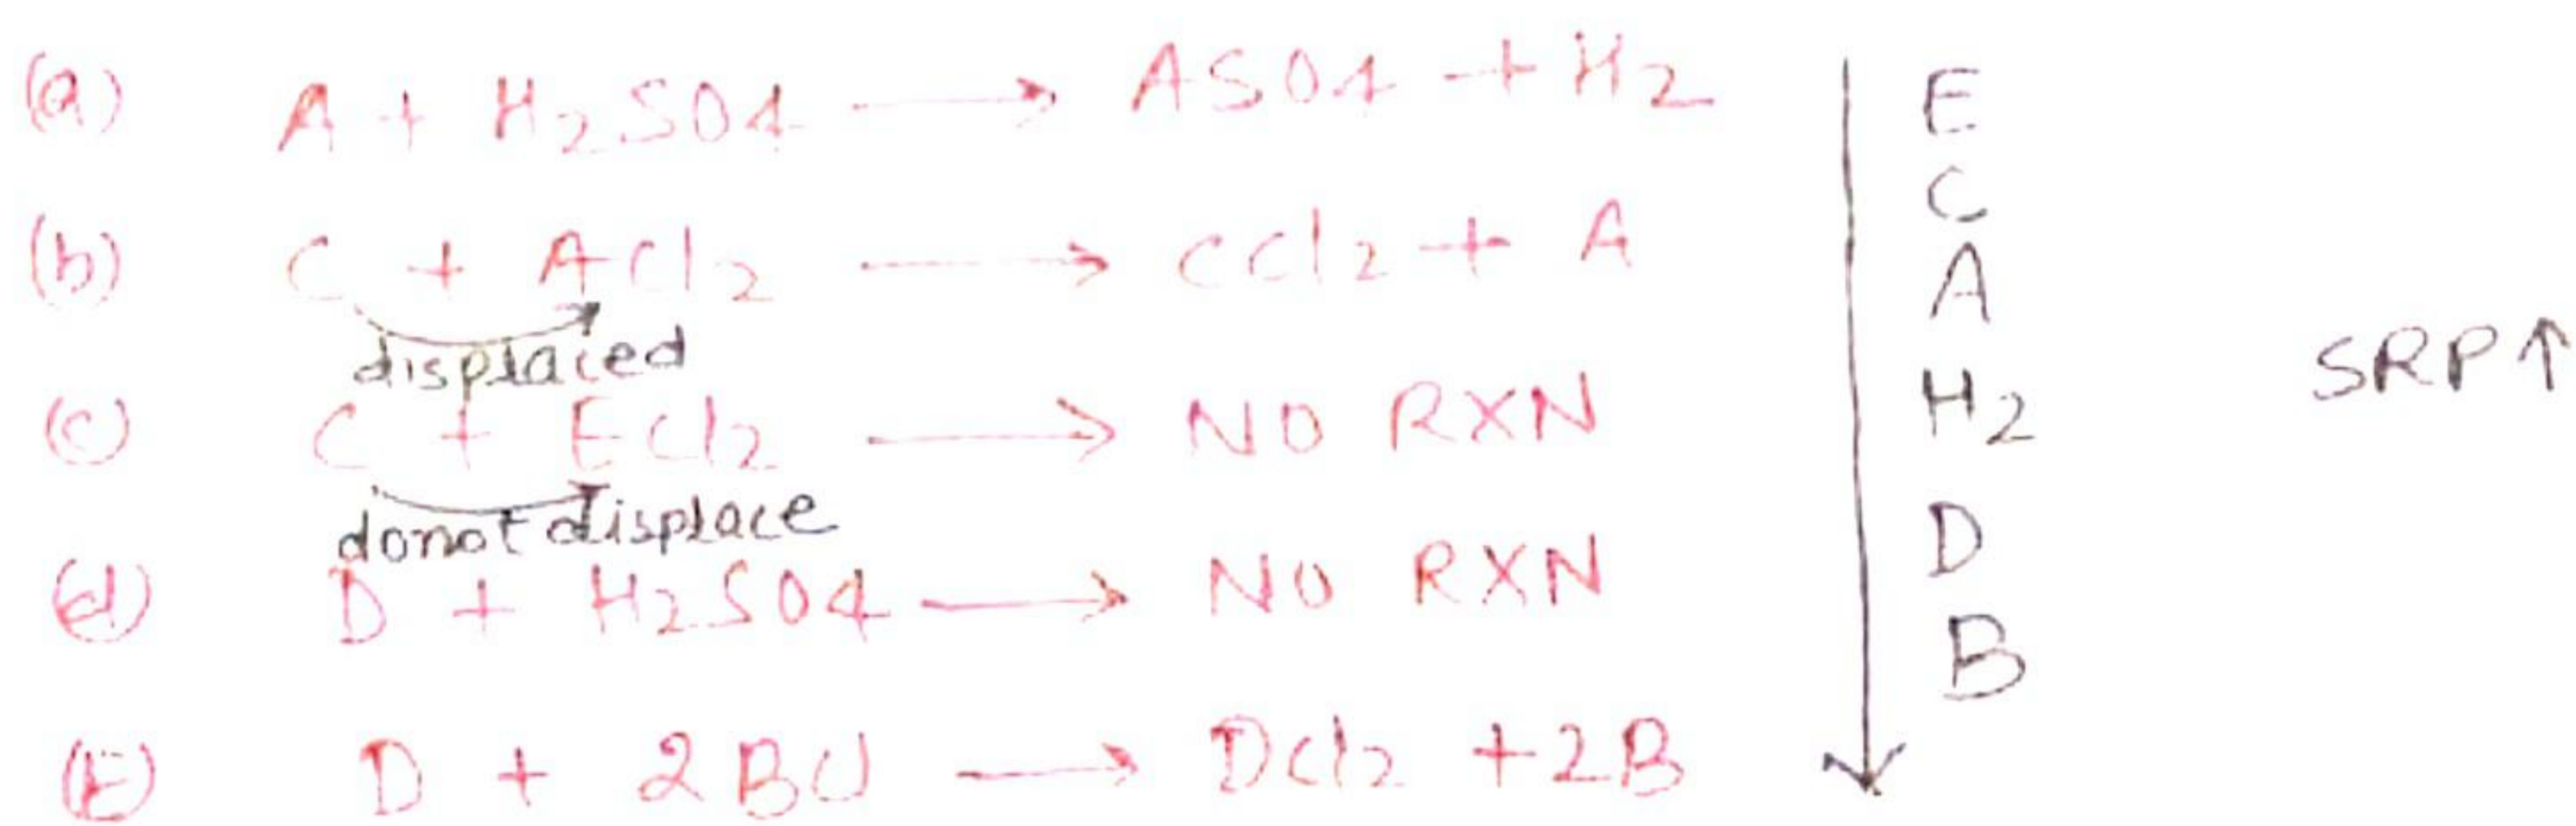 (a) A + H2SO4 → ASO4 + H2
(b) C + ACl2 → CCl2 + A
displaced
(c) C + ECl2 → NO RXN
donot displace
(d) D + H2SO4 → NO RXN
(E) D + 2BCl → DCl2 + 2B
E
C
A
H2
D
B
SRP↑